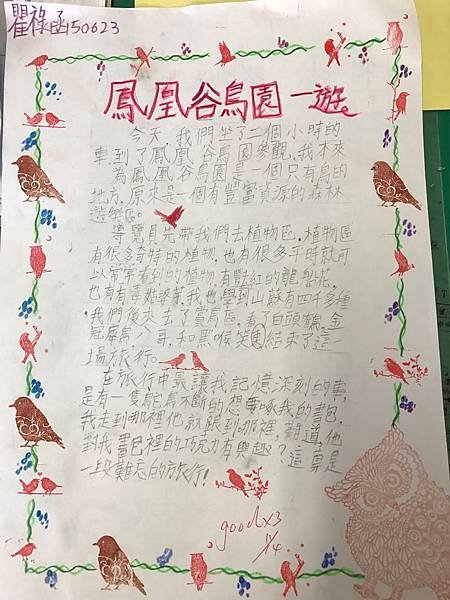 瞿祿函50623
鳳凰谷鳥園一遊
今天,我們坐了二個小時的
車到了鳳凰谷鳥園參觀,我本來
為鳳凰谷鳥園是一個只有鳥的
地方,原來是一個有豐富資源的森林
遊樂區。
導覽員先帶我們去植物區,植物區
有很多奇特的植物,也有很多平時就可
以常常看到的植物,有艷紅的龍船花,
也有有毒
我也學到山蘇有四千多種
,我們後來去了鳥區,看了白頭鶴、金
冠 八哥,和黑喉笑 結束了這一
場旅行。
在旅行中最讓我記憶深刻的事,
是有一隻鴕鳥不斷的想要啄我的書包,
我走到哪裡他就跟到哪裡,難道,他
對我書包裡的巧克力有興趣?這真是
一段難忘的旅行!
goodx3